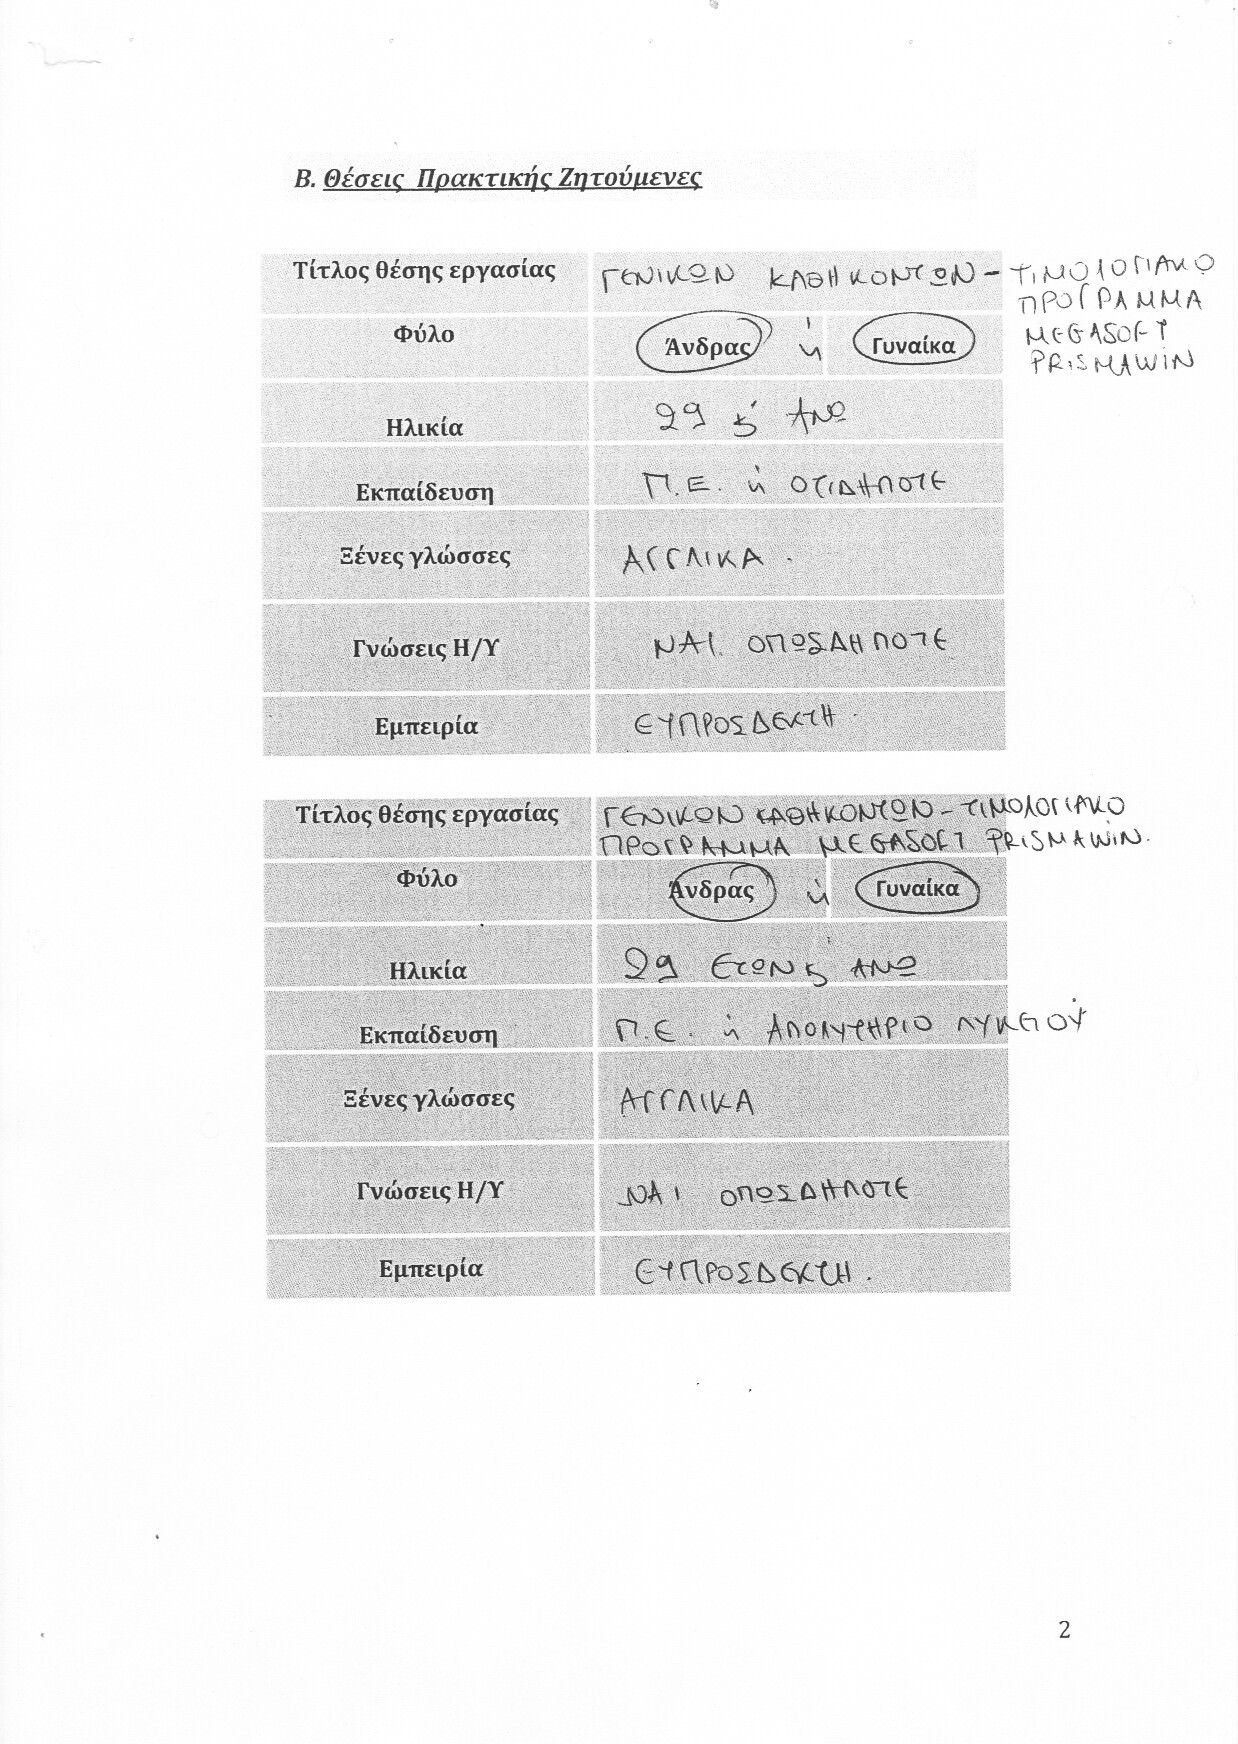 Β. Θέσεις Πρακτικής Ζητούμενες
Τίτλος θέσης εργασίας ΓΕΝΙΚΩΝ ΚΑΘΗΚΟΝΤΩΝ - ΤΙΜΟΛΟΓΙΑΚΟ
ΠΡΟΓΡΑΜΜΑ
MEGASOFT
PRISMAWIN
Φύλο Άνδρας ή Γυναίκα
Ηλικία 29 & ΑΝΩ
Εκπαίδευση Π.Ε. ή ΟΤΙΔΗΠΟΤΕ
Ξένες γλώσσες ΑΓΓΛΙΚΑ.
Γνώσεις Η/Υ ΝΑΙ. ΟΠΩΣΔΗΠΟΤΕ
Εμπειρία ΕΥΠΡΟΣΔΕΚΤΗ.
Τίτλος θέσης εργασίας ΓΕΝΙΚΩΝ ΚΑΘΗΚΟΝΤΩΝ - ΤΙΜΟΛΟΓΙΑΚΟ
ΠΡΟΓΡΑΜΜΑ MEGASOFT PRISMAWIN.
Φύλο Άνδρας ή Γυναίκα
Ηλικία 29 ΕΤΩΝ & ΑΝΩ
Εκπαίδευση Π.Ε. ή ΑΠΟΛΥΤΗΡΙΟ ΛΥΚΕΙΟΥ
Ξένες γλώσσες ΑΓΓΛΙΚΑ
Γνώσεις Η/Υ ΝΑΙ ΟΠΩΣΔΗΠΟΤΕ
Εμπειρία ΕΥΠΡΟΣΔΕΚΤΗ.
2